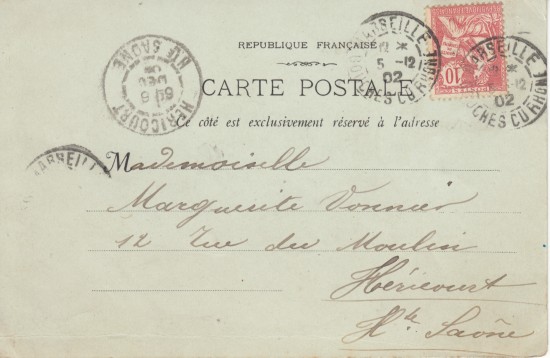 RÉPUBLIQUE FRANÇAISE
CARTE POSTALE
Ce côté est exclusivement réservé à l'adresse
MARSEILLE
12 *
5 -12
02
BOUCHES DU RHONE
MARSEILLE
5 -12
02
BOUCHES DU RHONE
10
HÉRICOURT
DEC
02
HTE SAONE
MARSEILLE
Mademoiselle
Marguerite Vonnier
12 Rue du Moulin
Héricourt
Hte Saône